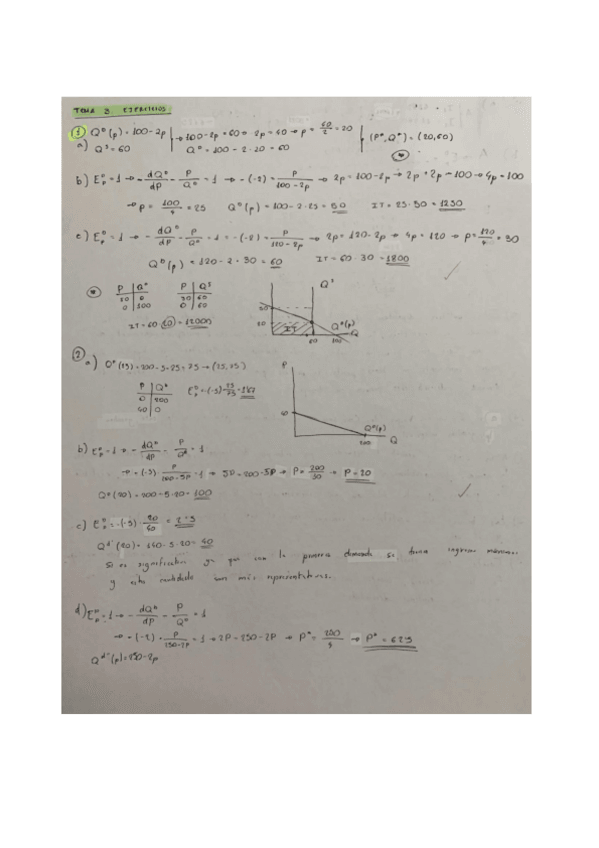 TEMA 3 EJERCICIOS
1 Q^D(p) = 100-2p → 100-2p = 60 → 2p = 40 → p = 40/2 = 20 (P*, Q*) = (20,60)
a) Q^S = 60 Q^D = 100 - 2·20 = 60
b) E_p^D = 1 → - dQ^D/dP · P/Q^D = 1 → -(-2) = P/100-2p → 2p = 100-2p → 2p + 2p = 100 → 4p = 100
→ p = 100/4 = 25 Q^D(p) = 100-2·25 = 50 IT = 25·50 = 1250
c) E_p^D = 1 → - dQ^D/dP · P/Q^D = 1 = -(-2) = P/120-2p → 2p = 120-2p → 4p = 120 → p = 120/4 = 30
Q^D(p) = 120-2·30 = 60 IT = 60·30 = 1800
P Q^D P Q^S
50 0 30 60
0 100 0 60
IT = 60
Q^S
30
20
IT
Q^D(p)
60 100 Q
2
a) Q^D(25) = 200-5·25 = 75 → (25,75)
P Q^D
0 200
40 0
P
40
Q^D(p)
200 Q
b) E_p^D = 1 → - dQ^D/dP · P/Q^D = 1
→ -(-5) · P/200-5p = 1 → 5P = 200-5P → P = 200/10 → P = 20
Q^D(20) = 200-5·20 = 100
c) E_p^D = -(-5) 20/40 = 2'5
Q^d'(20) = 140-5·20 = 40
Si es significativo ya que con la primera demanda se daria ingreso maximo
y esta cantidad son mis
d) E_p^D = 1 → - dQ^D/dP · P/Q^D = 1
→ -(-2) · P/250-2p = 1 → 2P = 250-2P → P* = 250/4 → P* = 62'5
Q^d'(p) = 250-2p